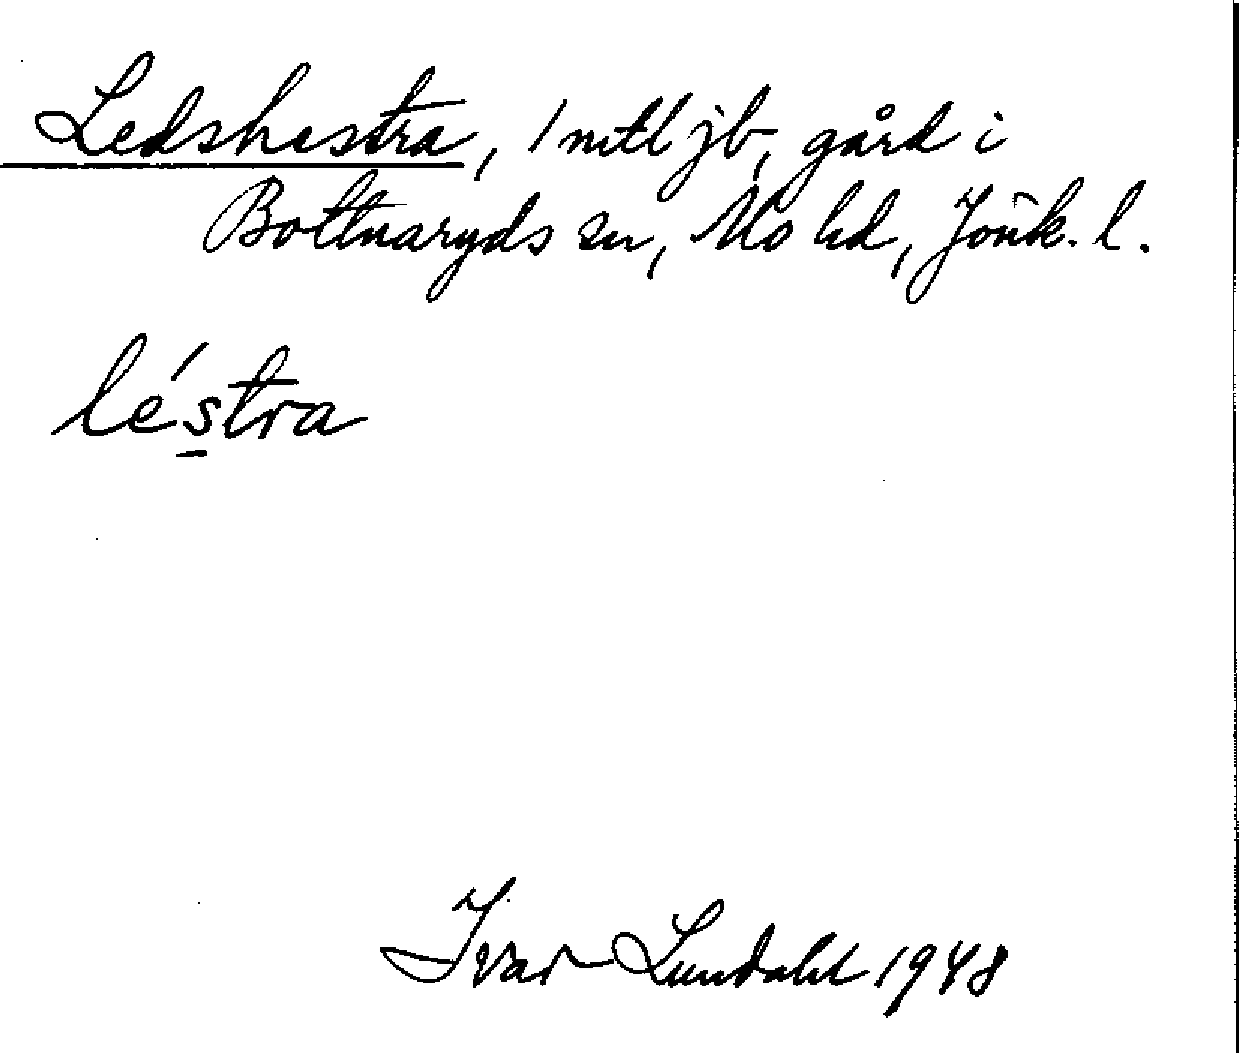 Ledshestra, 1 mtl jb, gård i
Bottnaryds sn, Mo hd, Jönk. l.
lé´stra
Ivar Lundahl 1948